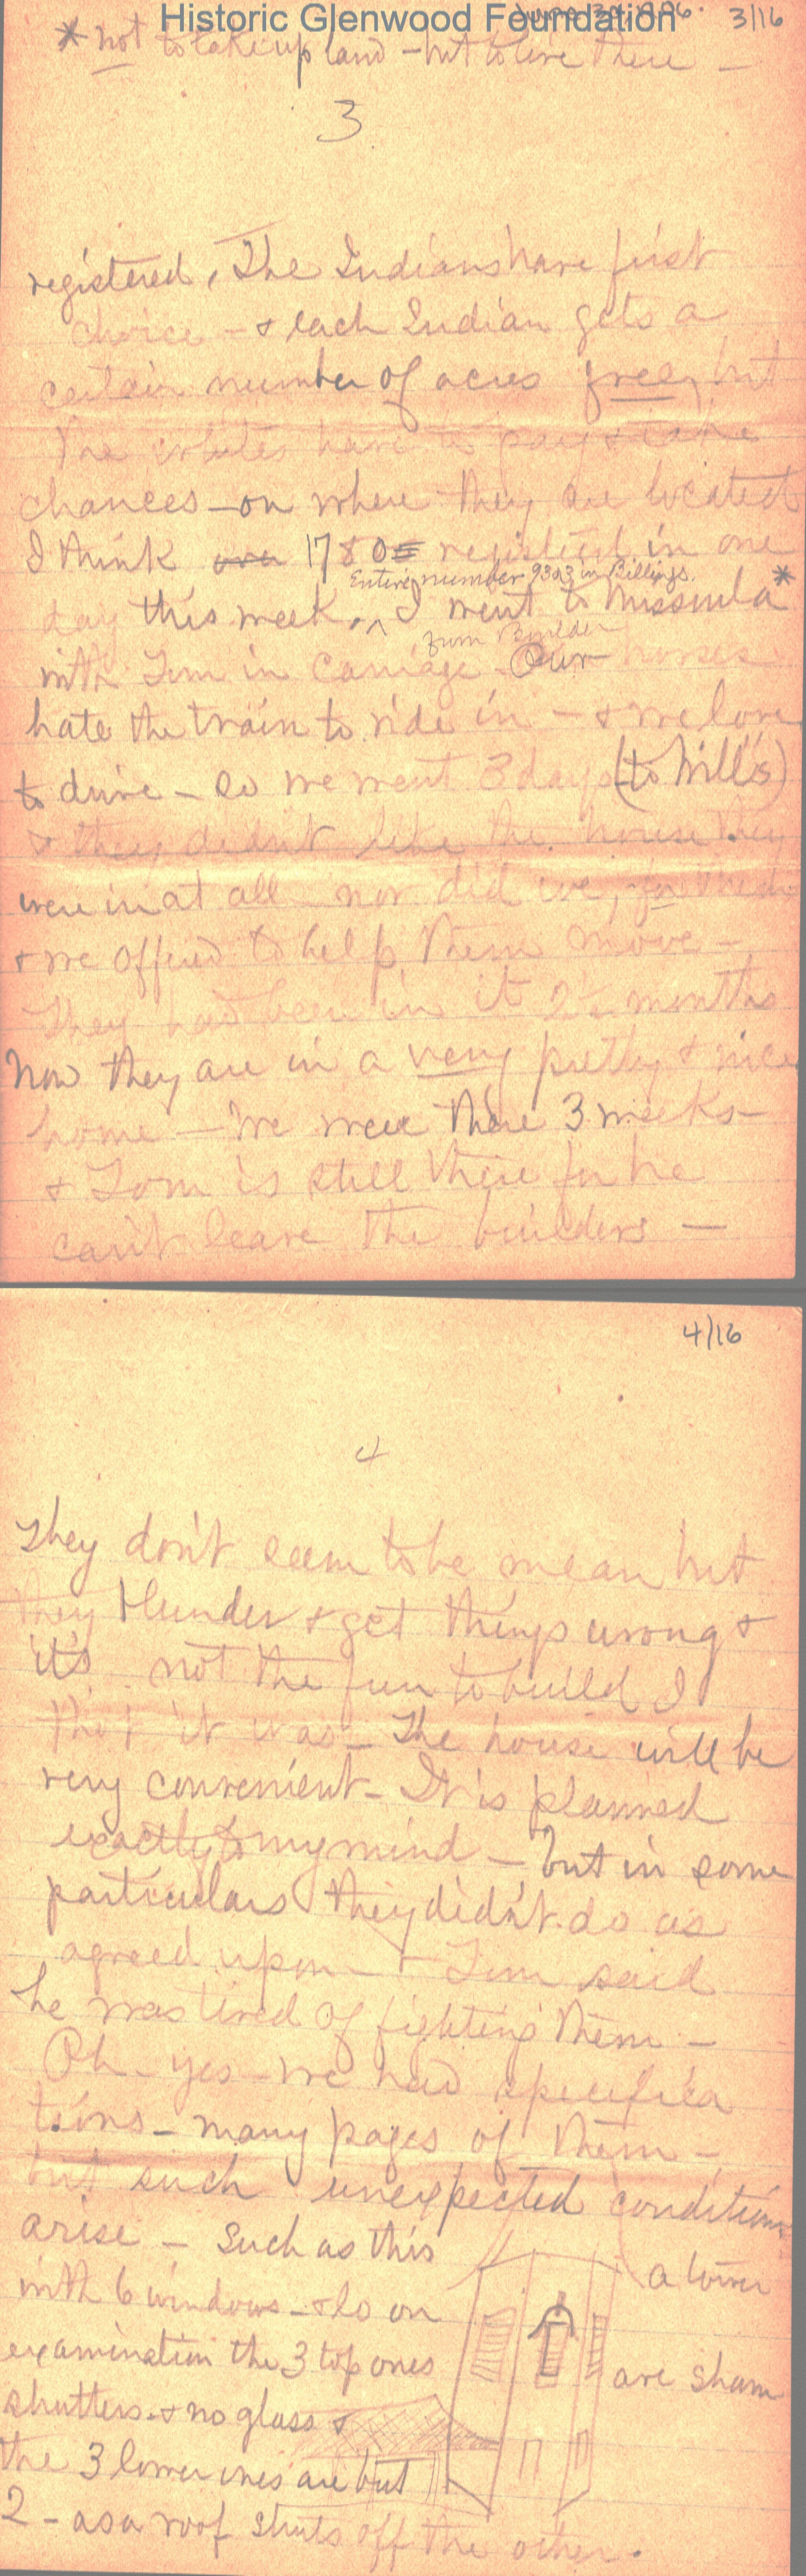 Historic Glenwood Foundation
3/16
* not to take up land - but to live there -
3
registered. The Indians have first
choice - & each Indian gets a
certain number of acres free, but
the whites have to pay & take
chances - on where they are located
I think over 1780 registered in one
Entire number 9323 in Billings.
day this week. ^ I went to Missoula *
from Boulder
with Tom in carriage. Our horses
hate the train to ride in - & we love
to drive - so we went 3 days (to Will's)
& they didn't like the house they
were in at all nor did we, for them
& we offered to help them move -
They had been in it 2½ months
Now they are in a very pretty & nice
home - We were there 3 weeks -
& Tom is still there for he
can't leave the builders -
4/16
4
They don't seem to be mean but
they blunder & get things wrong &
it's not the fun to build I
tho't it was - The house will be
very convenient - It is planned
exactly to my mind - but in some
particulars they didn't do as
agreed upon - & Tom said
he was tired of fighting them -
Oh - yes - we had specifica
tions - many pages of them -
but such unexpected conditions
arise - Such as this
a tower
with 6 windows - & lo on
examination the 3 top ones
are sham
shutters - & no glass &
the 3 lower ones are but
2 - as a roof shuts off the other.